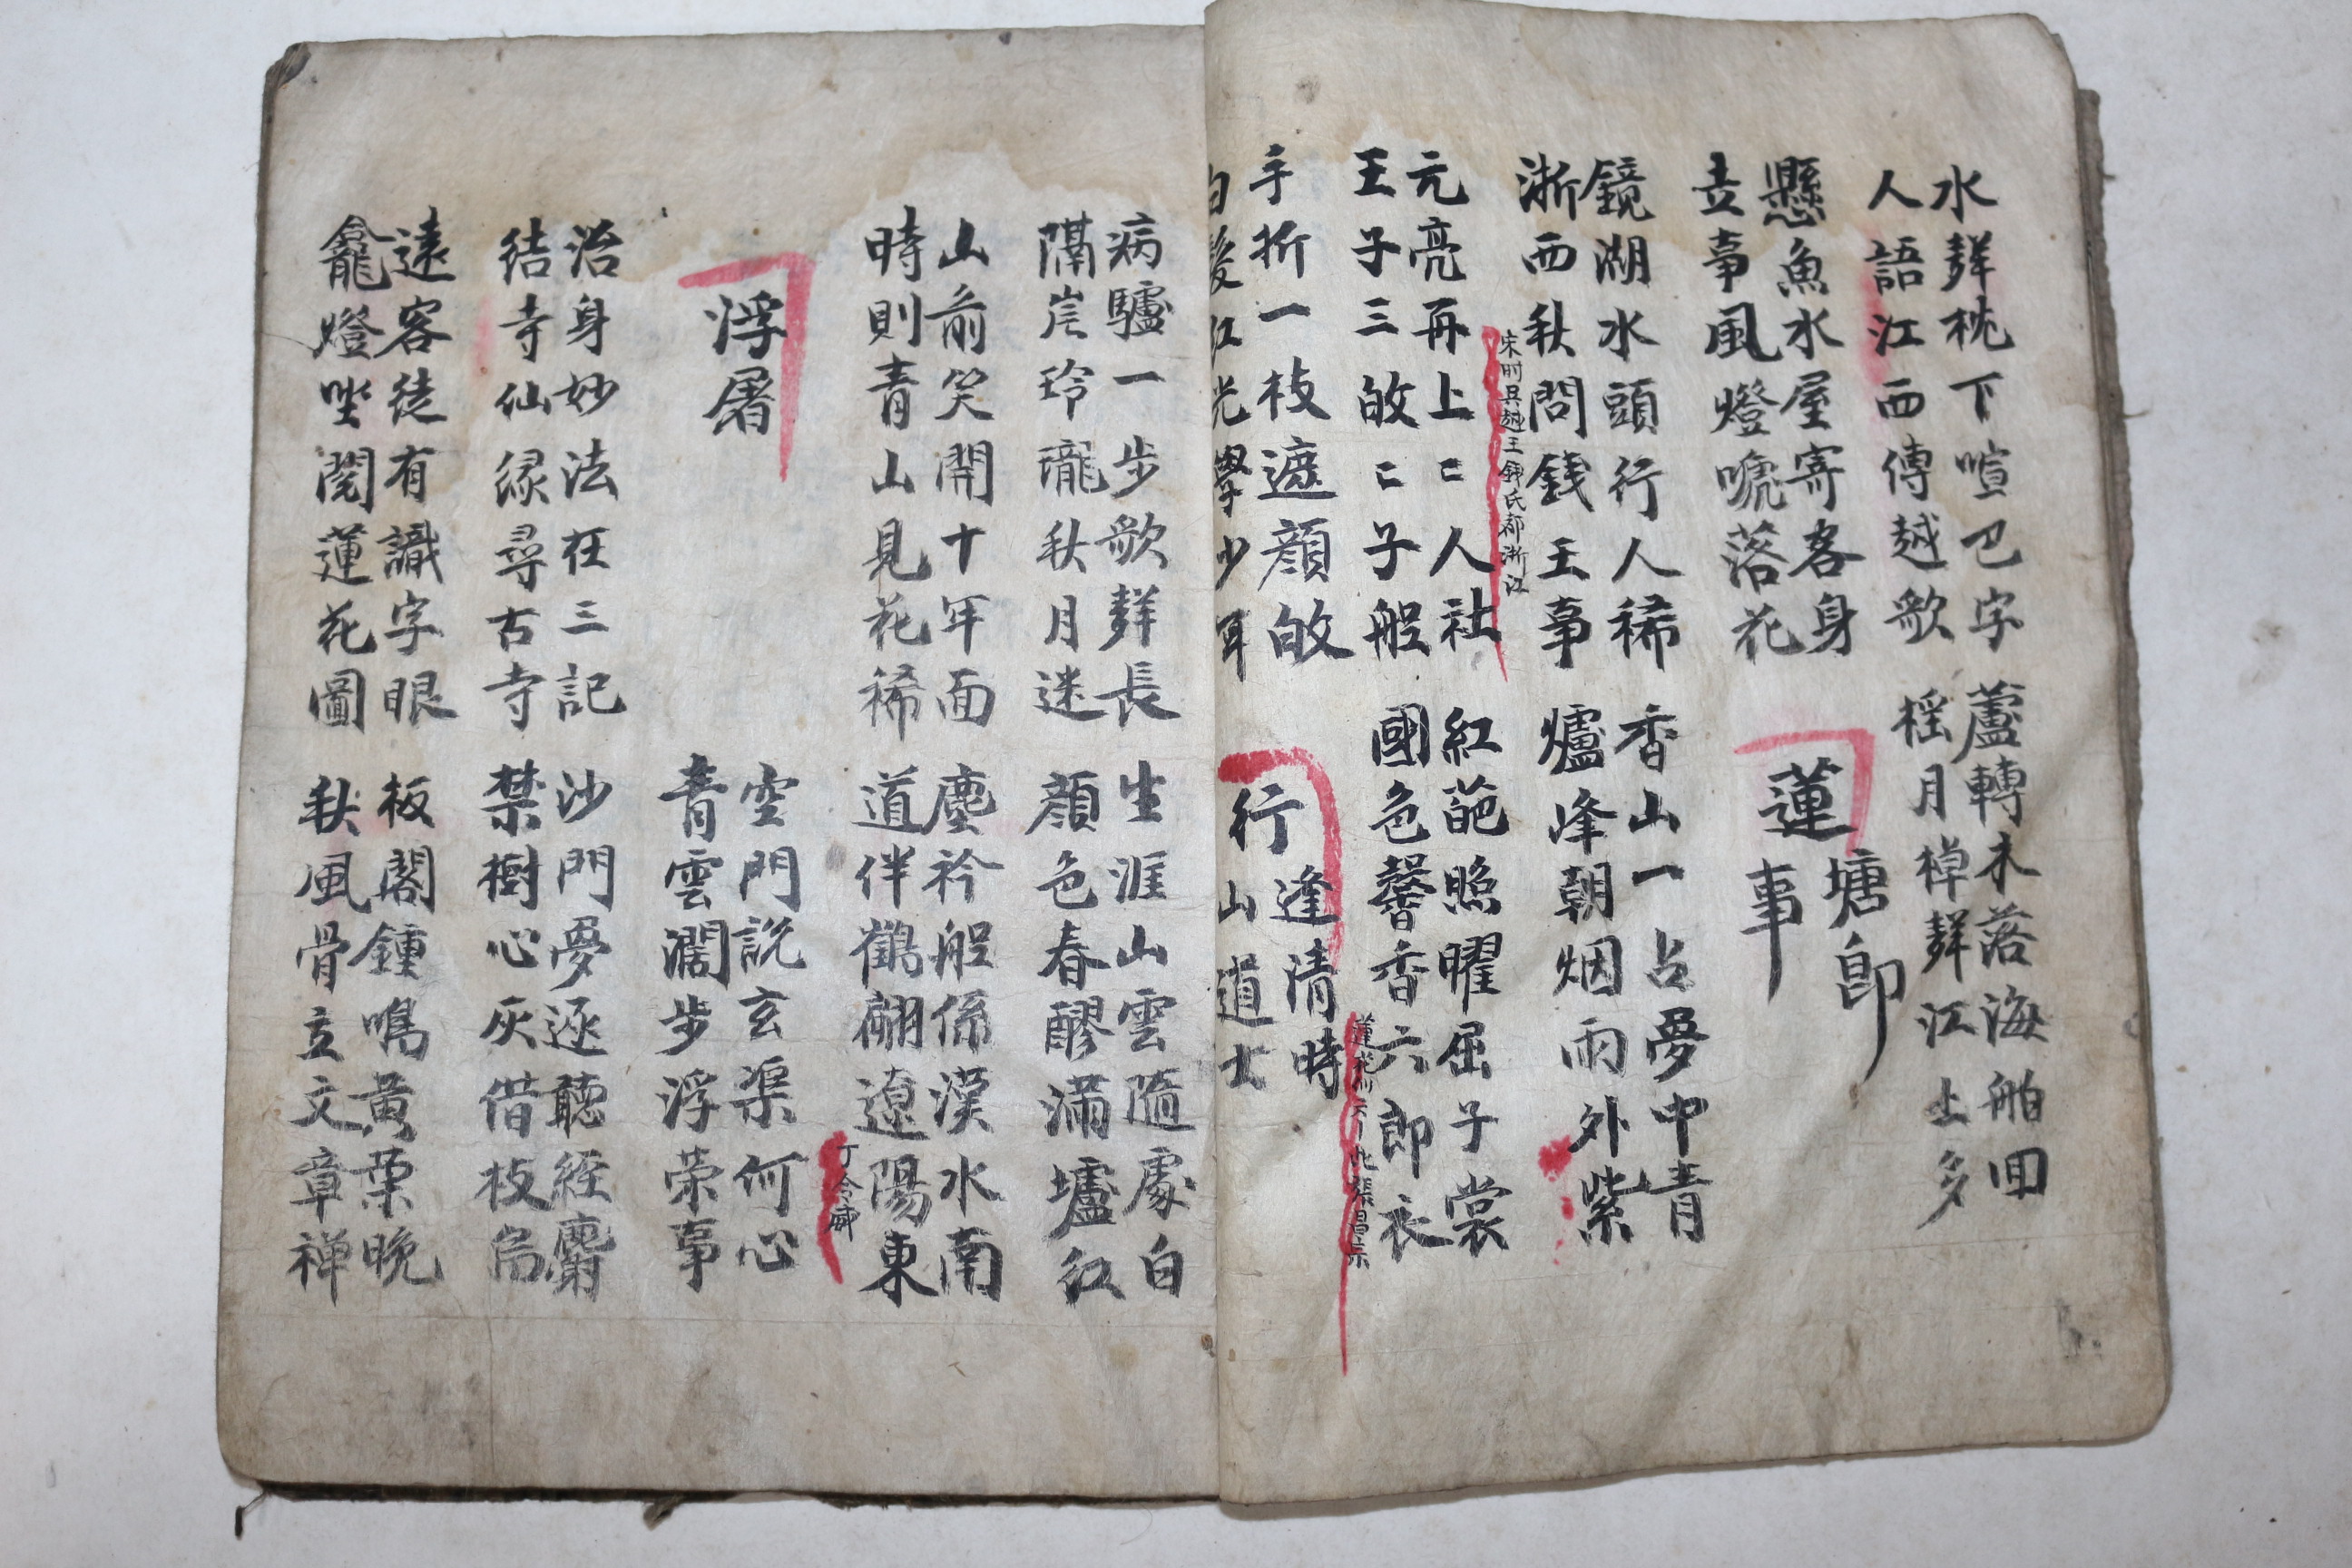 水聲枕下喧巴字
人語江西傳越歌
蘆轉木落海舶回
橈月棹聲江上多
懸魚水屋寄客身
立事風燈唬落花
蓮塘即事
鏡湖水頭行人稀
浙西秋問錢王事
香山一占夢中青
爐峰朝烟雨外紫
宋時吳越王錢氏都浙江
元亮再上二人社
王子三敀二子船
紅葩照曜屈子裳
國色馨香六郎衣
蓮花似六郎此張昌宗
手折一枝遮顔敀
白髮紅光學少年
行逢清時山道士
病驢一步歌聲長
隔岸玲瓏秋月迷
生涯山雲隨處白
顔色春醪滿壚紅
山前笑開十年面
時則青山見花稀
塵衿船係漢水南
道伴鶴翩遼陽東
丁令威
浮屠
空門説玄渠何心
青雲濶步浮榮事
治身妙法在三記
結寺仙緣尋古寺
沙門夢逐聽經麝
禁樹心灰借枝烏
遠客徒有識字眼
龕燈坐閱蓮花圖
板閣鍾鳴黃葉晚
秋風骨立文章禅